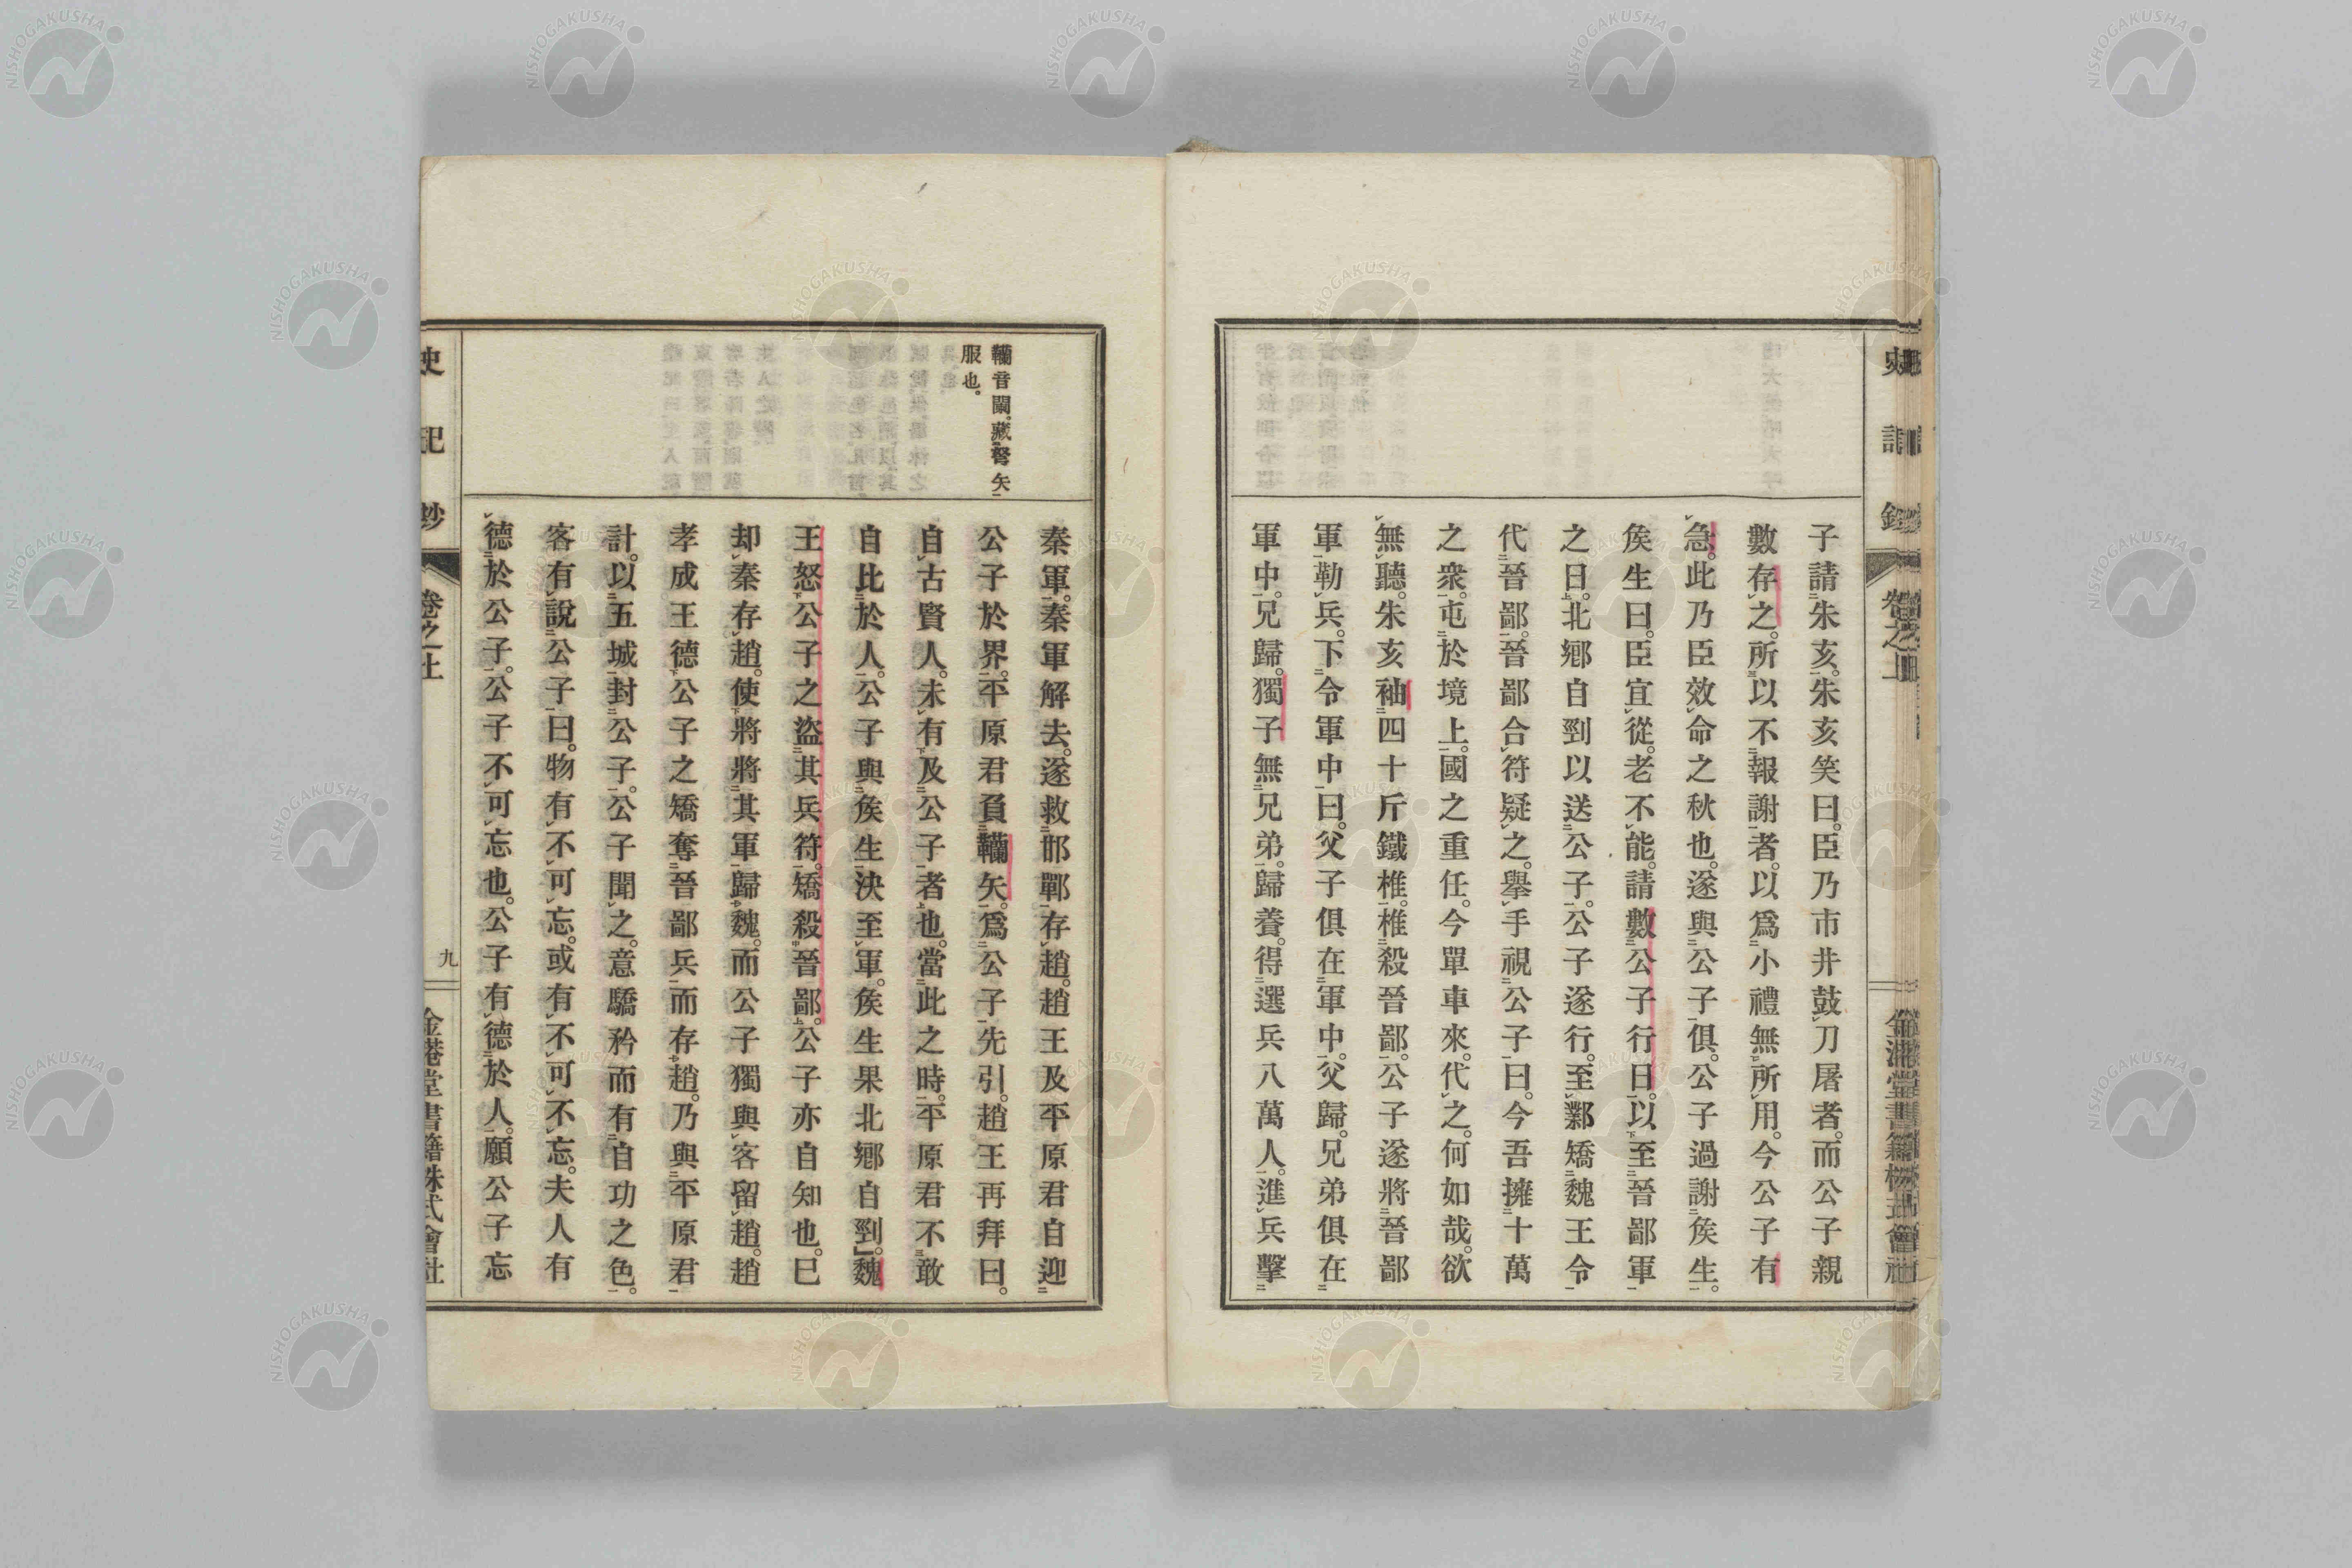 子請朱亥。朱亥笑曰。臣乃市井鼓刀屠者。而公子親
數存之。所以不報謝者。以爲小禮無所用。今公子有
急。此乃臣效命之秋也。遂與公子俱。公子過謝矦生。
矦生曰。臣宜從。老不能。請數公子行日。以至晉鄙軍
之日。北鄕自剄以送公子。公子遂行。至鄴矯魏王令
代晉鄙。晉鄙合符疑之。擧手視公子曰。今吾擁十萬
之衆。屯於境上。國之重任。今單車來。代之。何如哉。欲
無聽。朱亥袖四十斤鐵椎。椎殺晉鄙。公子遂將晉鄙
軍勒兵。下令軍中曰。父子俱在軍中。父歸。兄弟俱在
軍中。兄歸。獨子無兄弟。歸養。得選兵八萬人。進兵擊
秦軍。秦軍解去。遂救邯鄲存趙。趙王及平原君自迎
公子於界。平原君負韊矢。爲公子先引。趙王再拜曰。
自古賢人。未有及公子者也。當此之時。平原君不敢
自比於人。公子與矦生決至軍。矦生果北鄕自剄。魏
王怒公子之盜其兵符。矯殺晉鄙。公子亦自知也。已
却秦存趙。使將將其軍歸魏。而公子獨與客留趙。趙
孝成王德公子之矯奪晉鄙兵而存趙。乃與平原君
計。以五城封公子。公子聞之。意驕矜而有自功之色。
客有說公子曰。物有不可忘。或有不可不忘。夫人有
德於公子。公子不可忘也。公子有德於人。願公子忘
韊音闌。藏弩矢
服也。
史記鈔
卷之上
九
金港堂書籍株式會社
NISHOGAKUSHA